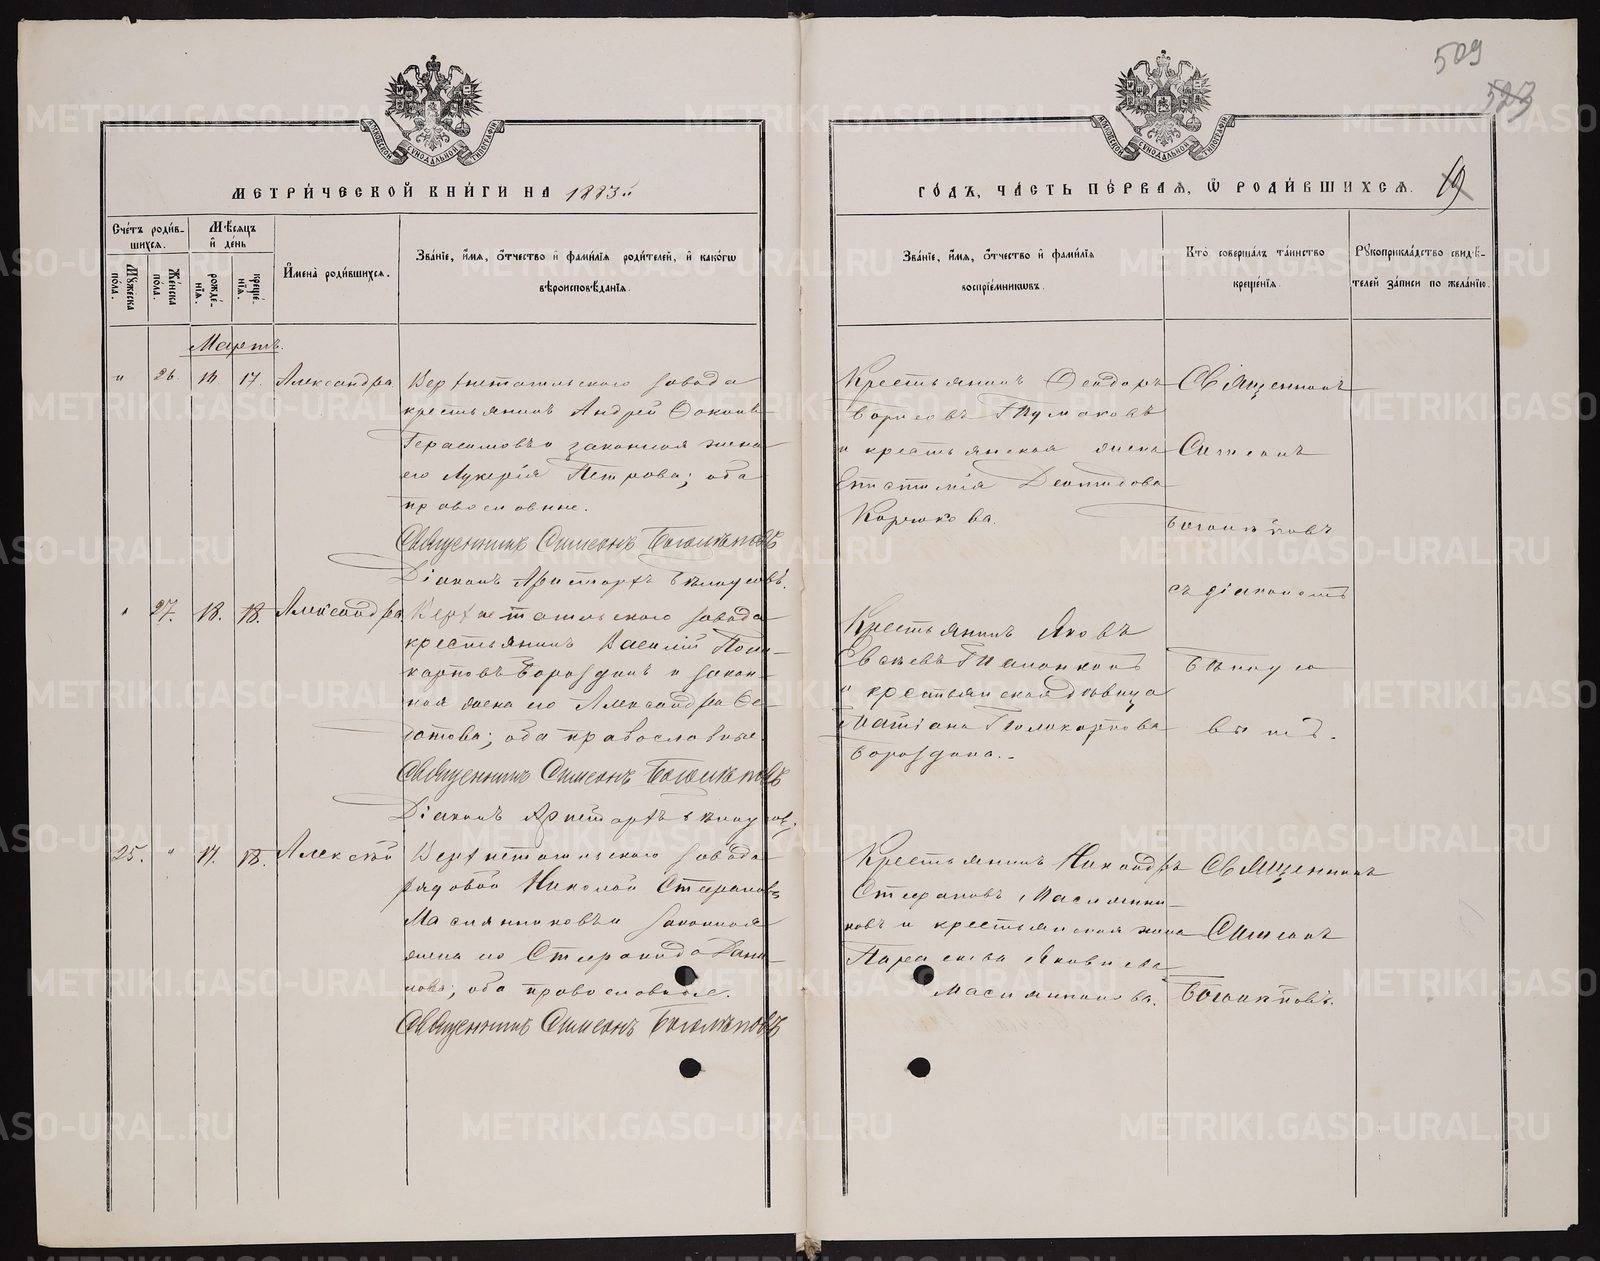 509
523
МОСКОВСКОЙ СУНОДАЛЬНОЙ ТИПОГРАФІИ
МОСКОВСКОЙ СУНОДАЛЬНОЙ ТИПОГРАФІИ
МЕТРИ́ЧЕСКОЙ КНИ́ГИ НА 1883й
ГО́ДЪ, ЧА́СТЬ ПЕ́РВАЯ, Ѿ РОДИ́ВШИХСЯ. 19
Сче́тъ роди́в-
шихся.
Мѣ́сяцъ
и҆ де́нь
Мꙋ́жеска
по́ла.
Же́нска
по́ла.
рожде́-
нїя.
креще́-
нїя.
И҆мена̀ роди́вшихся.
Зва́нїе, и҆́мя, ѻ҆́тчество и҆ фами́лїя роди́телей, и҆ како́гѡ
вѣроисповѣ́данїя.
Зва́нїе, и҆́мя, ѻ҆́тчество и҆ фами́лїя
воспрїе́мниковъ.
Кто̀ соверша́лъ та́инство
креще́нїя.
Рꙋкоприкла́дство свидѣ́-
телей за́писи по жела́нїю.
Мартъ.
" 26. 17. Александра
Верхнетагильскаго завода
крестьянинъ Андрей
Герасимовъ и законная жена
его Лукерія Петрова; оба
православные.
Священникъ Симеонъ Боголѣповъ
Діаконъ Аристархъ Бѣлоусовъ.
Крестьянинъ Ѳеодоръ
Борисовъ
и крестьянская жена
Корюкова.
Священникъ
Симеонъ
Боголѣповъ
съ діакономъ
Бѣлоусо
вымъ.
" 27. 18. 18. Александра
Верхнетагильскаго завода
крестьянинъ Василій Поли-
карповъ Бороздинъ и закон-
ная жена его Александра Ѳе-
дотова; оба православные.
Священникъ Симеонъ Боголѣповъ
Діаконъ Аристархъ Бѣлоусовъ.
Крестьянинъ Яковъ
и крестьянская дѣвица
Татіана Поликарпова
Бороздина.
25. " 17. 18. Алексѣй
Верхнетагильскаго завода
рядовой Николай Стефановъ
Масленниковъ и законная
жена его Стефанида
оба православные.
Священникъ Симеонъ Боголѣповъ
Крестьянинъ Никандръ
Стефановъ Масленни-
ковъ и крестьянская жена
Параскева Яковлева
Масленникова.
Священникъ
Симеонъ
Боголѣповъ.
METRIKI.GASO-URAL.RU